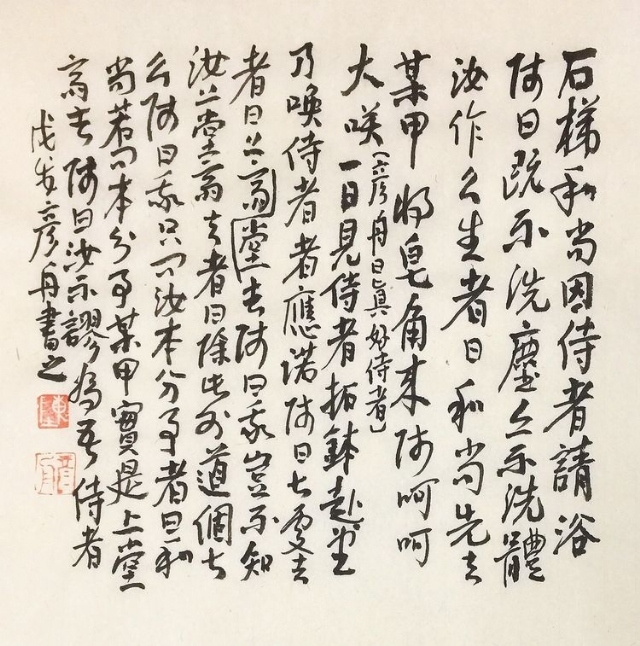 石梯和尚因侍者請浴
師曰既不洗塵亦不洗體
汝作么生者曰和尚先去
某甲將皂角來師呵呵
大咲(彥舟曰真好侍者)一日見侍者拓鉢赴堂
乃喚侍者者應諾師曰甚處去
者曰上齋堂去師曰我豈不知
汝上堂齋去者曰除此外道個甚
么師曰我只問汝本分事者曰和
尚若問本分事某甲實是上堂
齋去師曰汝不謬為吾侍者
戊戌彥舟書之